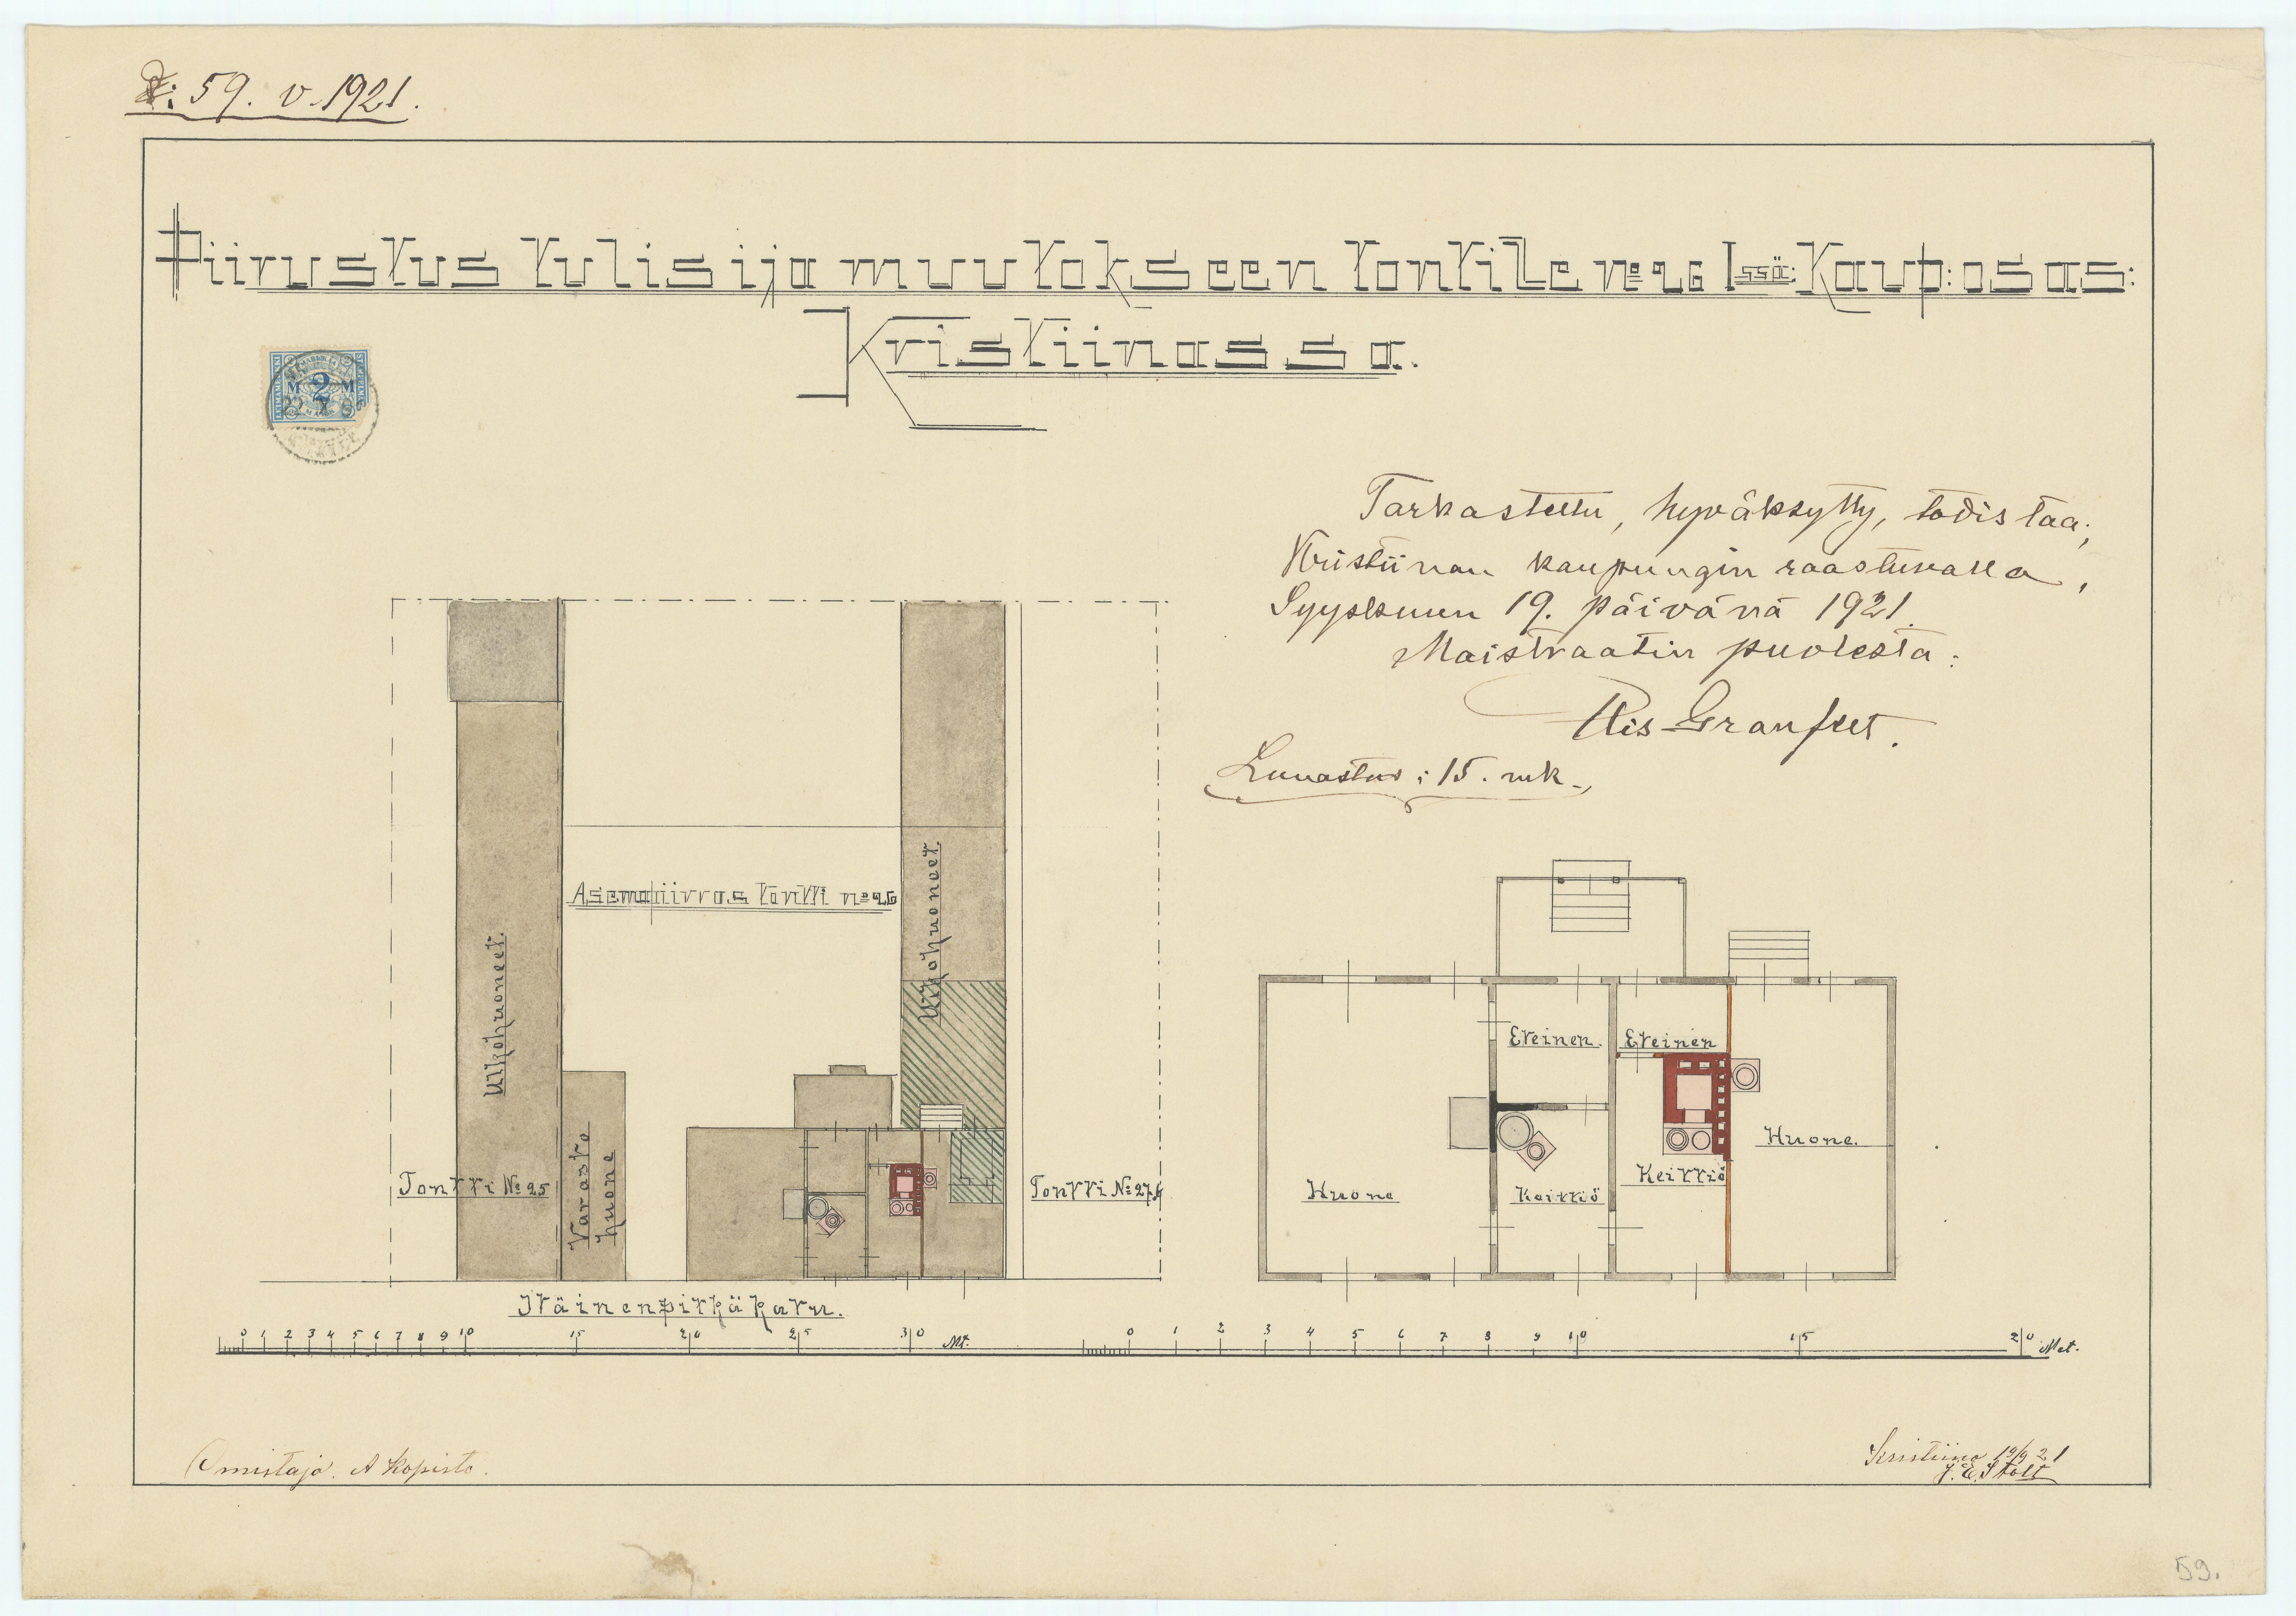 D: 59. v. 1921.
Piirustus tulisija muutokseen tontille No 26 Issä: Kaup: osas:
Kristiinassa.
M 2 M
Tarkastettu, hyväksytty, todistaa;
Kristiinan kaupungin raastuvassa,
Syyskuun 19. päivänä 1921.
Maistraatin puolesta:
Granfelt.
Lunastus: 15. mk.
Asemapiirros tontti No 26
Ulkohuoneet.
Ulkohuoneet.
Varasto
huone
Tontti No 25
Tontti No 27
Eteinen.
Eteinen
Huone
Keittiö
Keittiö
Huone.
Itäinenpitkäkatu.
0 1 2 3 4 5 6 7 8 9 10 15 20 25 30 Mt.
0 1 2 3 4 5 6 7 8 9 10 15 20 Met.
Omistaja. A Kopisto.
Kristiina 19/9 21
J. E. Stolt
59.